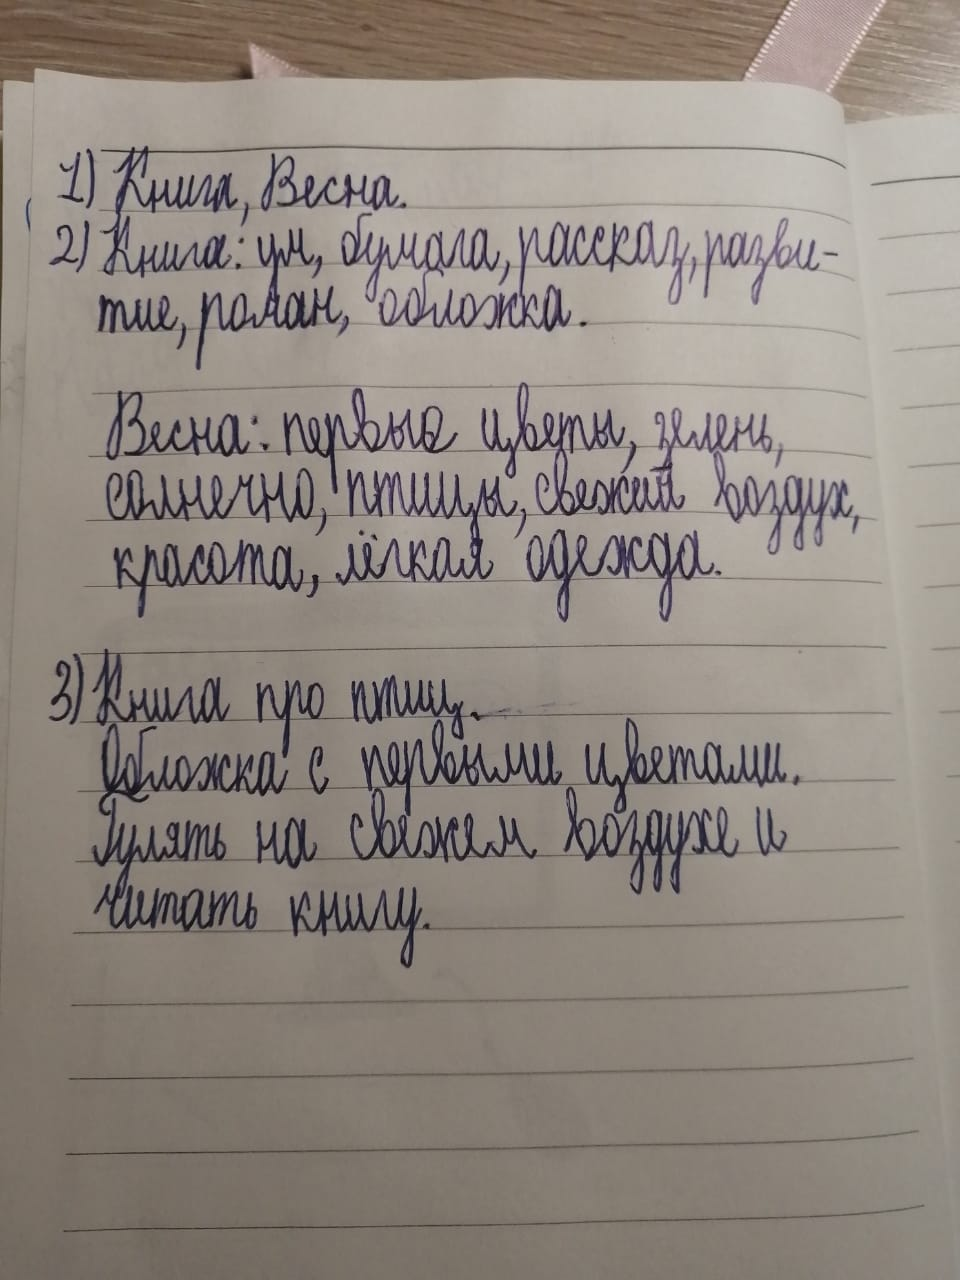 1) Книга, Весна.
2) Книга: ум, бумага, рассказ, разви-
тие, роман, обложка.
Весна: первые цветы, зелень,
солнечно, птицы, свежий воздух,
красота, лёгкая одежда.
3) Книга про птиц.
Обложка с первыми цветами.
Гулять на свежем воздухе и
читать книгу.